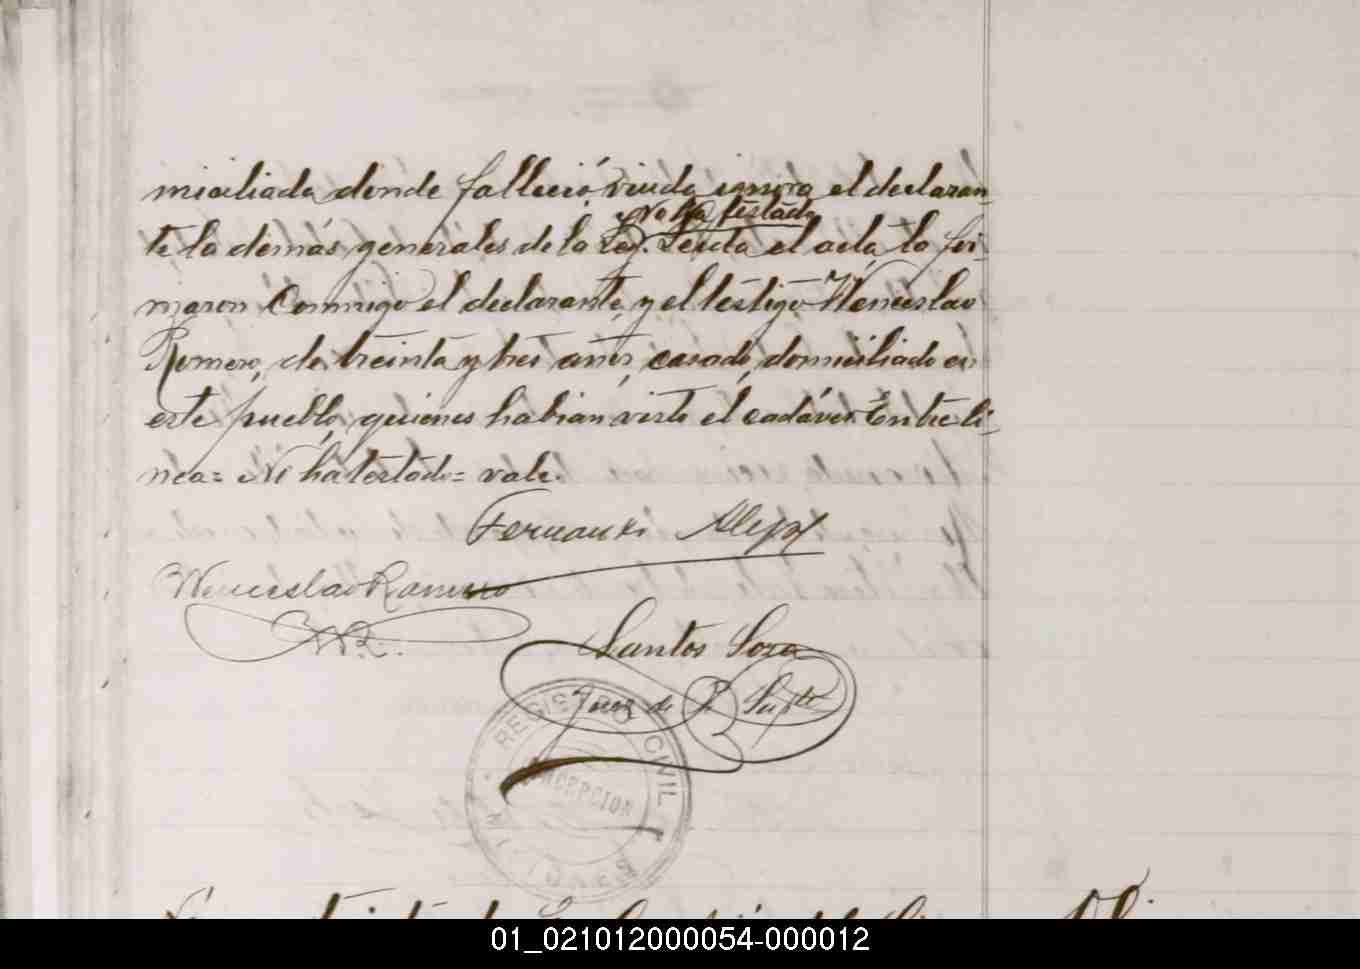 miciliada donde falleció, viuda, ignora el declaran-
y No ha testado
te la demás generales de la Ley. Leida el acta, la fir-
maron conmigo el declarante, y el testigo Wenceslao
Romero, de treinta y tres años, casado, domiciliado en
este pueblo, quienes habian visto el cadáver. Entre li-
nea= No ha testado= vale.
Fernando
Wenceslao Romero
W.R.
Santos Sosa
Juez de P. Supte
REGISTRO CIVIL
CONCEPCION
01_021012000054-000012